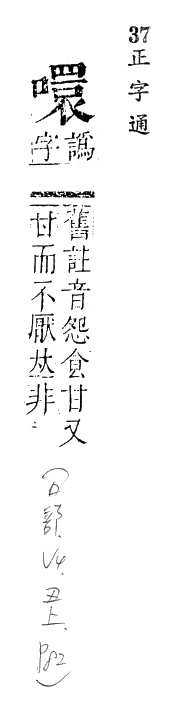 37
正字通
噮
譌字
舊註音怨食甘又
甘而不厭𠀤非
(口部. V4. 丑上. P82)